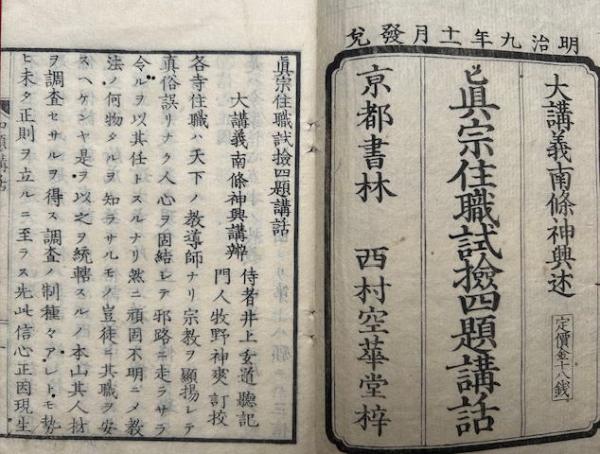 明治九年十一月發兌
大講義南條神興述
定價金十八銭
眞宗住職試撿四題講話
京都書林 西村空華堂梓
眞宗住職試撿四題講話
大講義南條神興講辨
侍者井上玄道聽記
門人牧野神爽訂校
各寺住職ハ天下ノ教導師ナリ宗教ヲ顯揚レテ
眞俗誤リナク人心ヲ固結レテ邪路ニ走ラサラ
令ルヲ以其任トスルナリ然ニ頑固不明ニノ教
法ノ何物タルヲ知ラサルモノ豈徒ニ其職ヲ安
スヘケンヤ是ヲ以之ヲ統轄スルノ本山其人材
ヲ調査セサルヲ得ス調査ノ制種々アレトモ勢
ヒ未タ正則ヲ立ルニ至ラス先此信心正因現生
四題講話